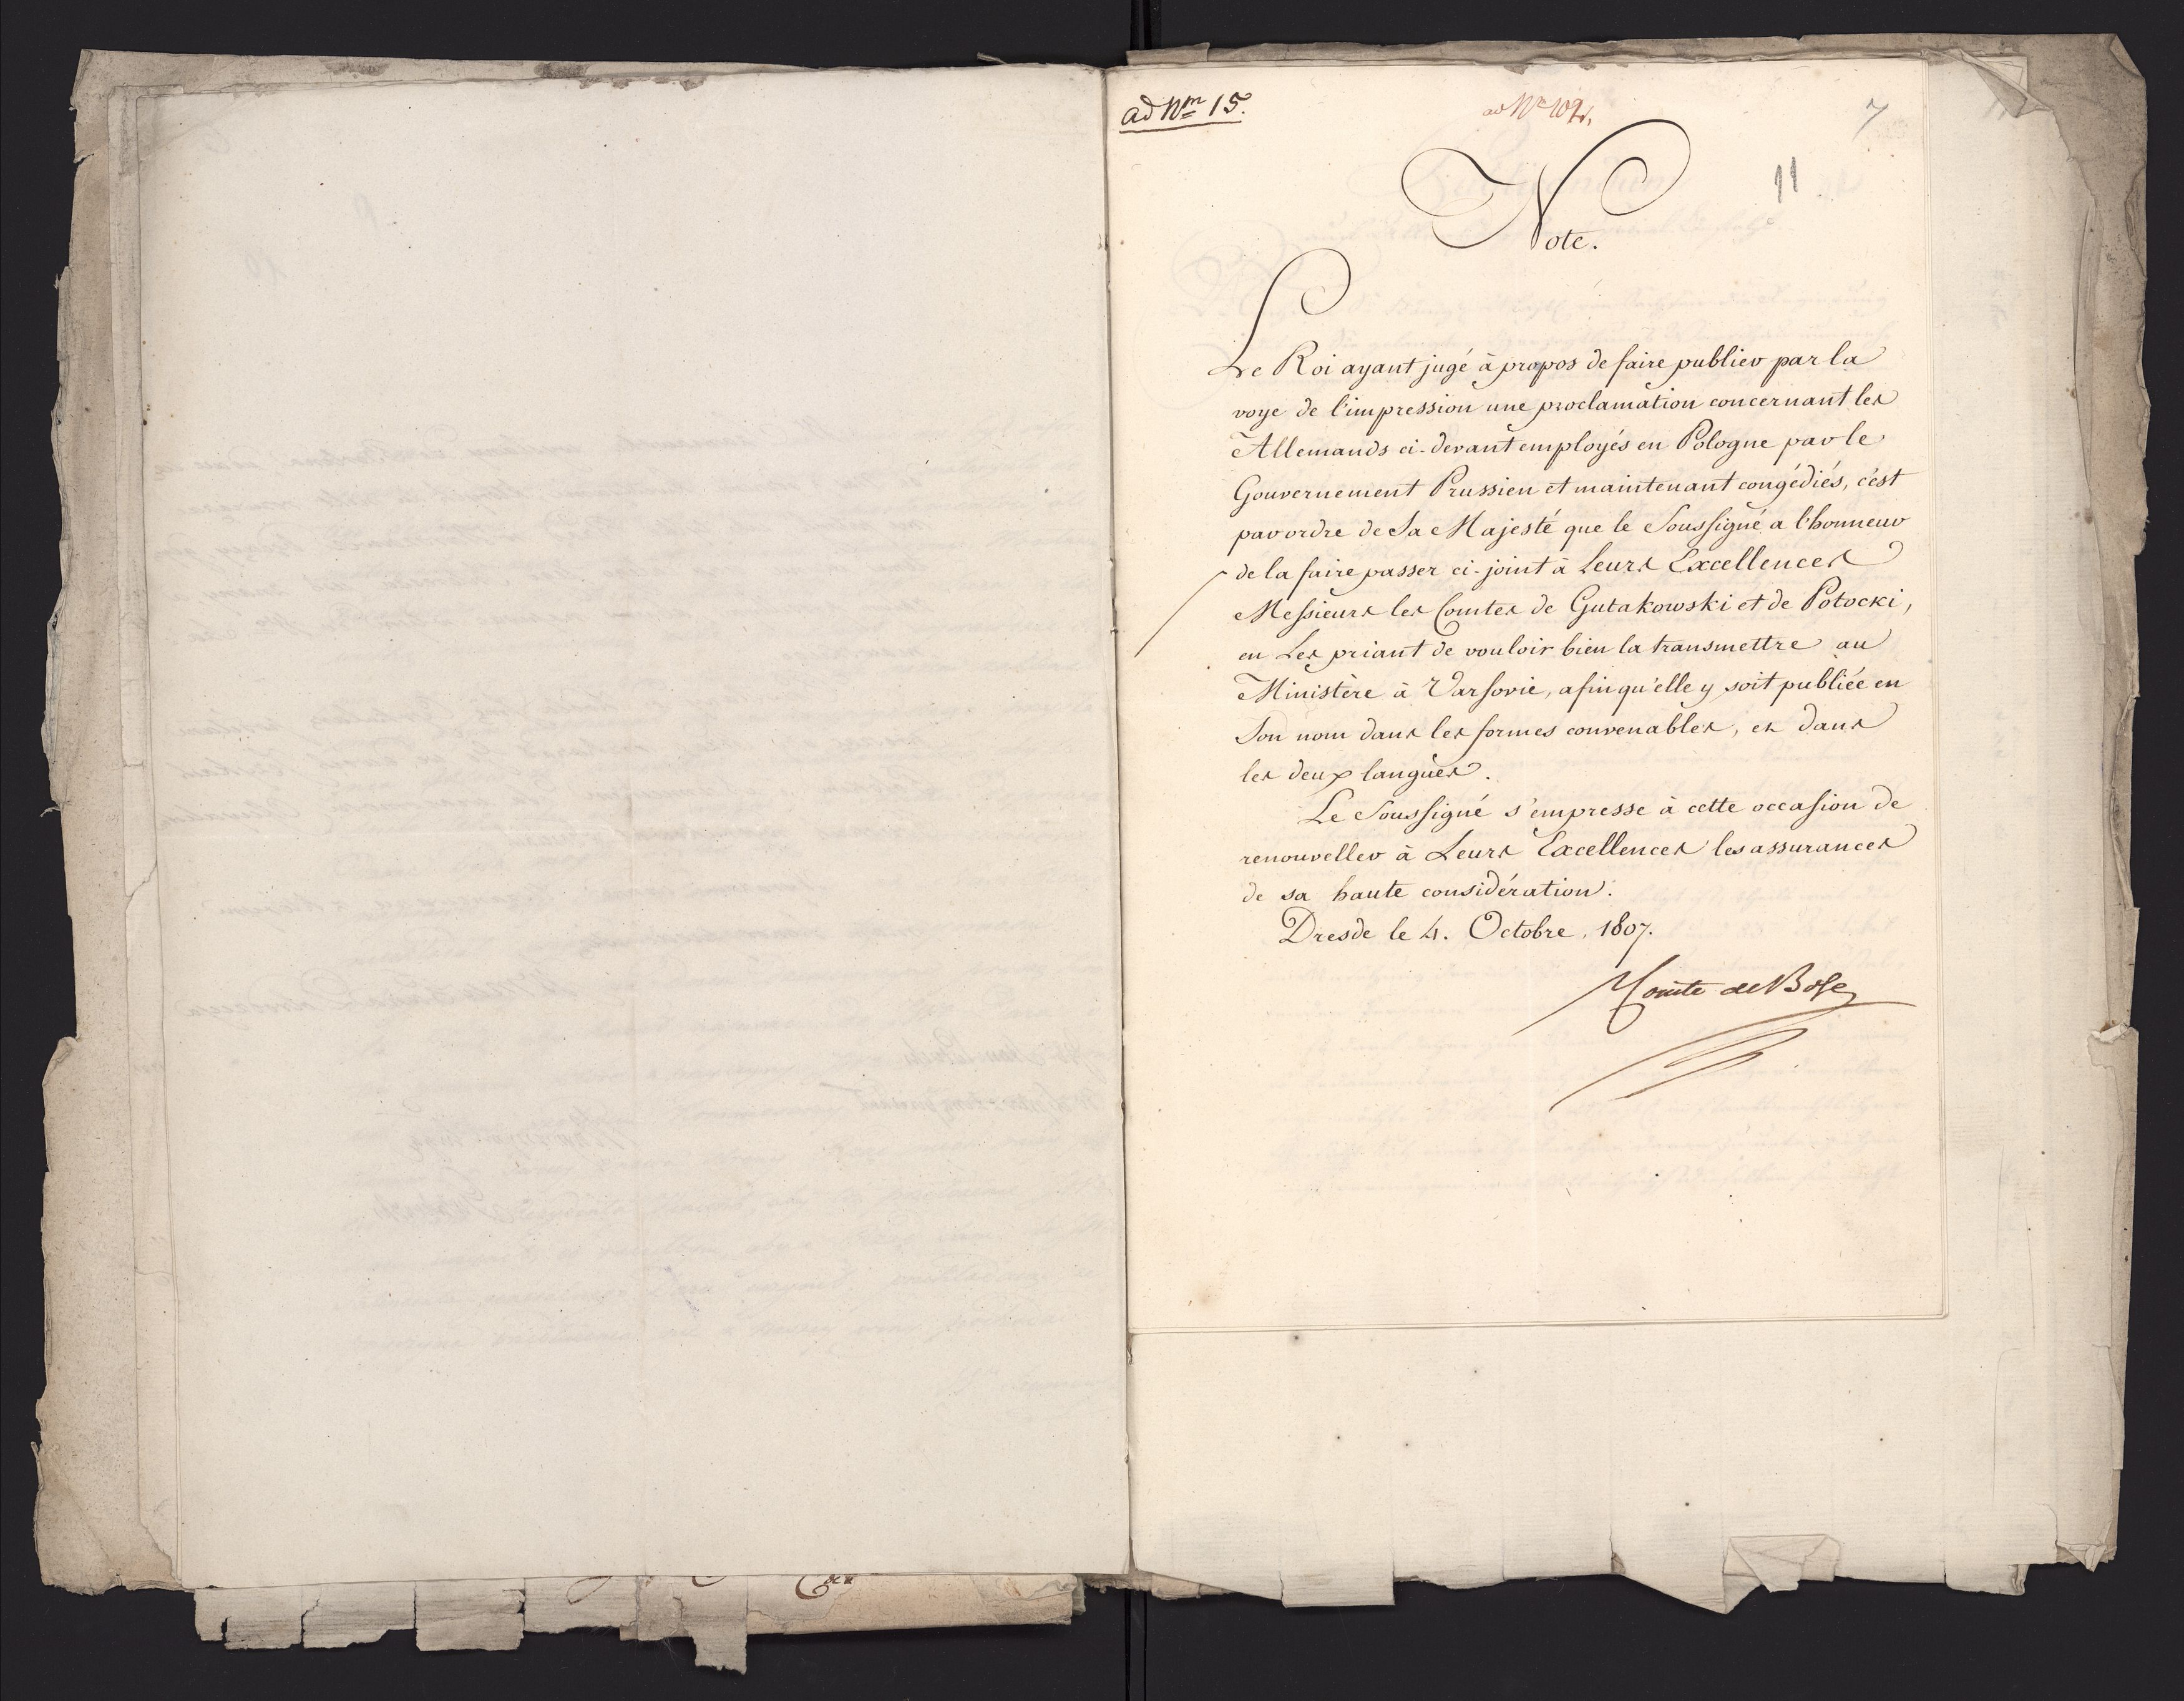 ad Nm 15.
ad No 102.
7
11
Note.
Le Roi ayant jugé à propos de faire publier par la
voye de l'impression une proclamation concernant les
Allemands ci-devant employés en Pologne par le
Gouvernement Prussien et maintenant congédiés, c'est
par ordre de Sa Majesté que le Soussigné a l'honneur
de la faire passer ci-joint à Leurs Excellences
Messieurs les Comtes de Gutakowski et de Potocki,
en Les priant de vouloir bien la transmettre au
Ministère à Varsovie, afin qu'elle y soit publiée en
Son nom dans les formes convenables, et dans
les deux langues.
Le Soussigné s'empresse à cette occasion de
renouveller à Leurs Excellences les assurances
de sa haute considération.
Dresde le 4. Octobre. 1807.
Comte de Bose